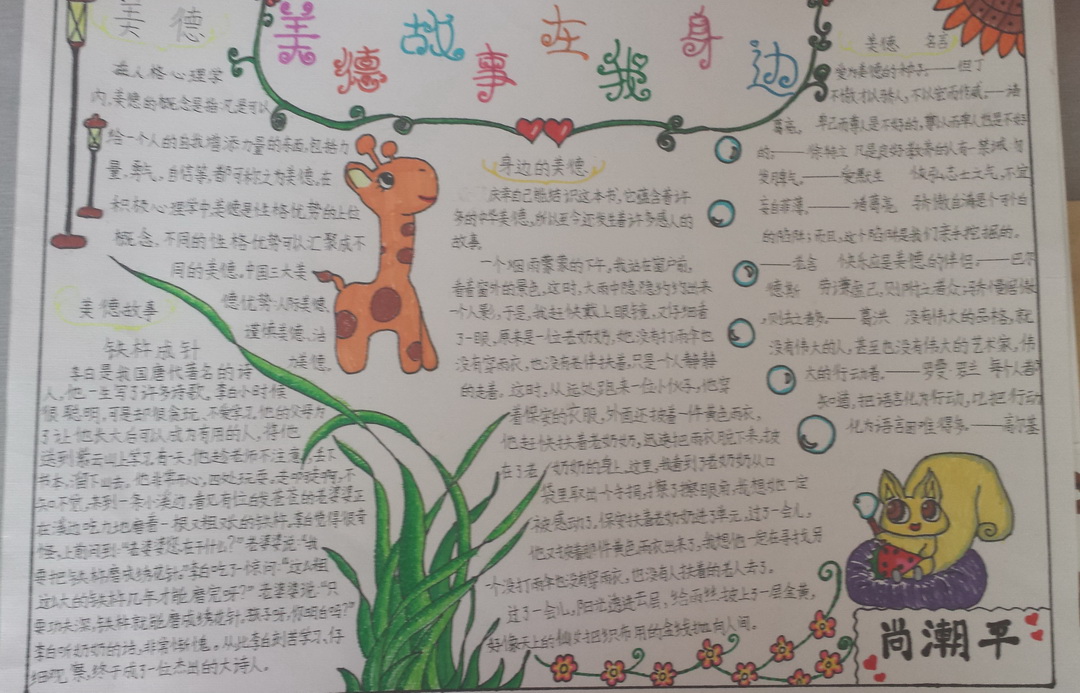 美德故事在我身边
美德
在人格心理学
内,美德的概念是指:凡是可以
给一个人的自我增添力量的东西,包括力
量、勇气、自信等,都可称之为美德。在
积极心理学中美德是性格优势的上位
概念,不同的性格优势可以汇聚成不
同的美德。中国三大美
德优势:人际美德、
谨慎美德、活
力美德。
美德故事
铁杵成针
李白是我国唐代著名的诗
人,他一生写了许多诗歌。李白小时候
很聪明,可是却很贪玩、不爱学习,他的父母为
了让他长大后可以成为有用的人,将他
送到蒙云山上学习。有一天,他趁老师不注意,丢下
书本,溜下山去。他非常开心,四处玩耍。走
来到一条小溪边,看见有位白发苍苍的老婆婆正
在溪边吃力地磨着一根又粗又的铁杵。李白觉得很奇
怪,上前问到:“老婆婆您在干什么?”老婆婆说:“我
要把铁杵磨成绣花针。”李白吃了一惊问:“这么粗
这么大的铁杵几年才能磨完呀?”老婆婆说:“只
要功夫深,铁杵就能磨成绣花针。孩子呀,你明白吗?”
李白听奶奶的话,非常惭愧。从此李白刻苦学习、仔
细观察,终于成了一位杰出的大诗人。
身边的美德
庆幸自己能结识这本书,它蕴含着许
多的中华美德,所以至今还发生着许多感人的
故事。
一个烟雨蒙蒙的下午,我站在窗户前,
看着窗外的景色,这时,大雨中隐隐约约出来
一个人影,于是,我赶快戴上眼镜,又仔细看
了一眼,原来是一位老奶奶,她没有打雨伞也
没有穿雨衣,也没有老伴扶着,只是一个人静静
的走着。这时,从远处跑来一位小伙子,他穿
着保安的衣服,外面还披着一件黄色雨衣,
他赶快扶着老奶奶,迅速把雨衣脱下来,披
在了老奶奶的身上,这里,我看到了老奶奶从口
袋里取出一个手捐,擦了擦眼角,我想她一定
被感动了,保安扶着老奶奶进了单元,过了一会儿,
他又披着那件黄色雨衣出来了,我想他一定在寻找另
一个没打雨伞也没有穿雨衣,也没有人扶着的老人去了。
过了一会儿,阳光透进云层,给雨丝披上了一层金黄,
好像天上的仙女把织布用的金线抛向人间。
美德 名言
爱为美德的种子。——但丁
不傲才以骄人,不以宠而作威。——诸
葛亮。 卑己而尊人是不好的,尊己而卑人也是不好
的。——徐特立 凡是良好教养的人有一禁诫:勿
发脾气。——爱默生 恢弘志士之气,不宜
妄自菲薄。——诸葛亮 骄傲自满是个可怕
的陷阱;而且,这个陷阱是我们亲手挖掘的。
——老舍 快乐应是美德的伴侣。——巴尔
德斯 劳谦虚己,则附之者众;骄慢倨傲
,则去之者多。——葛洪 没有伟大的品格,就
没有伟大的人,甚至也没有伟大的艺术家,伟
大的行动者。——罗曼·罗兰 每个人都
知道,把语言化为行动,比把行动
化为语言困难得多。——高尔基
尚潮平